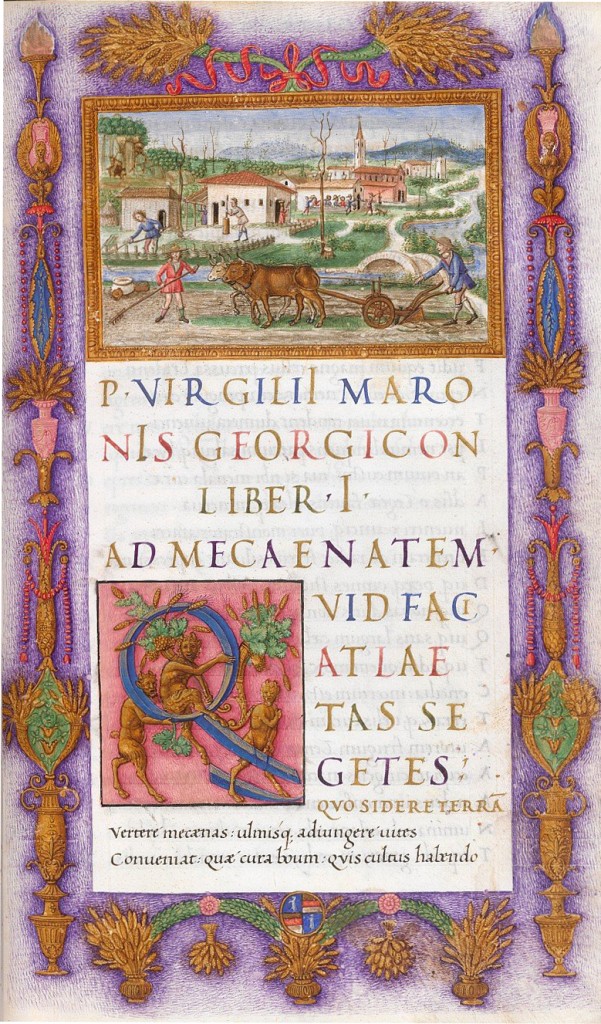 P· VIRGILII MARO
NIS GEORGICON
LIBER · I ·
AD MECAENATEM ·
QVID FACI
AT LAE
TAS SE
GETES ·
QVO SIDERE TERRĀ
Vertere mecænas : ulmisq. adiungere uites
Conueniat : quæ cura boum : quis cultus habendo